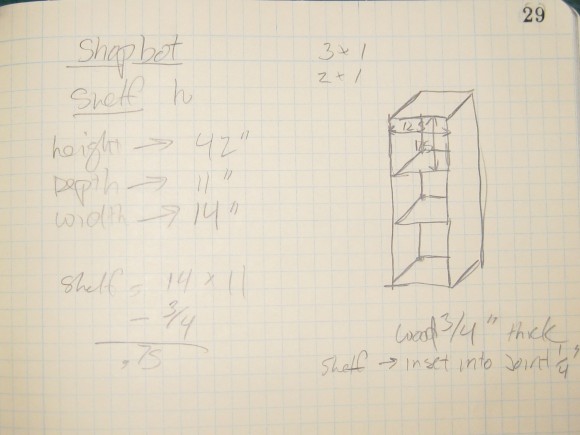 29
Shopbot
Shelf
height → 42"
Depth → 11"
width → 14"
Shelf = 14 x 11
- 3/4
.75
3 x 1
2 x 1
12.5
wood 3/4" thick
Shelf → inset into Joint 1/4"